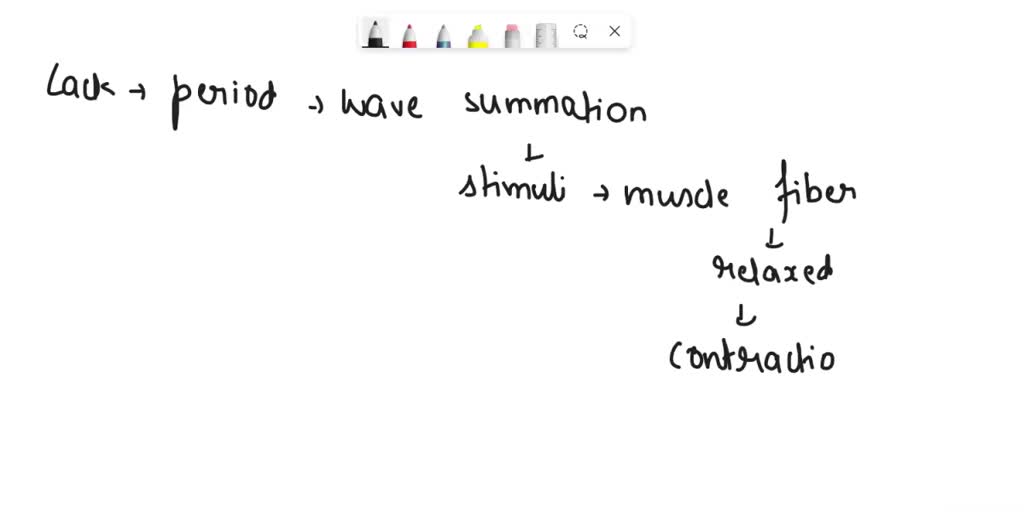 Lack → period → wave summation
↓
stimuli → muscle fiber
↓
relaxed
↓
contractio